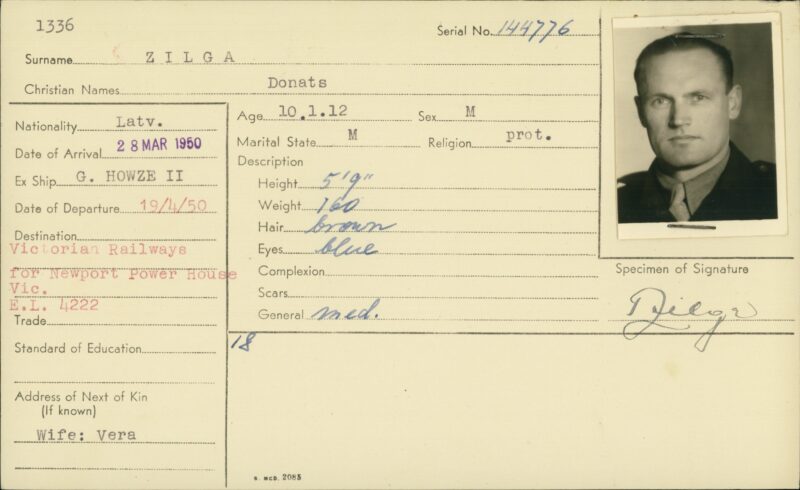 1336
Serial No. 144776
Surname ZILGA
Christian Names Donats
Nationality Latv.
Date of Arrival 28 MAR 1950
Ex Ship G. HOWZE II
Date of Departure 19/4/50
Destination
Victorian Railways
for Newport Power House
Vic.
E.L. 4222
Trade
Standard of Education
Address of Next of Kin
(If known)
Wife: Vera
Age 10.1.12 Sex M
Marital State M Religion prot.
Description
Height 5'9"
Weight 160
Hair brown
Eyes blue
Complexion
Scars
General med.
18
Specimen of Signature
DZilga
S. MCD. 2085